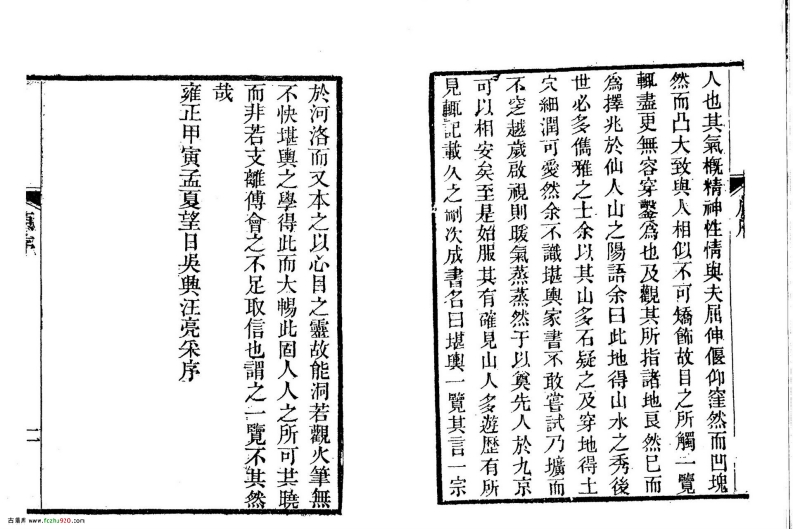 人也其氣概精神性情與夫屈伸偃仰窪然而凹塊
然而凸大致與人相似不可矯飾故目之所觸一覽
輒盡更無容穿鑿爲也及觀其所指諸地艮然巳而
爲擇兆於仙人山之陽語余曰此地得山水之秀後
世必多儁雅之士余以其山多石疑之及穿地得土
穴細潤可愛然余不識堪輿家書不敢嘗試乃壙而
不窆越歲啟視則暖氣蒸蒸然于以奠先人於九京
可以相安矣至是始服其有確見山人多遊歴有所
見輒記載久之劂次成書名曰堪輿一覽其言一宗
於河洛而又本之以心目之靈故能洞若觀火筆無
不快堪輿之學得此而大暢此固人人之所可共曉
而非若支離傅會之不足取信也謂之一覽不其然
哉
雍正甲寅孟夏望日吳興汪亮采序
舊序
二
古籍库 www.fczhu920.com